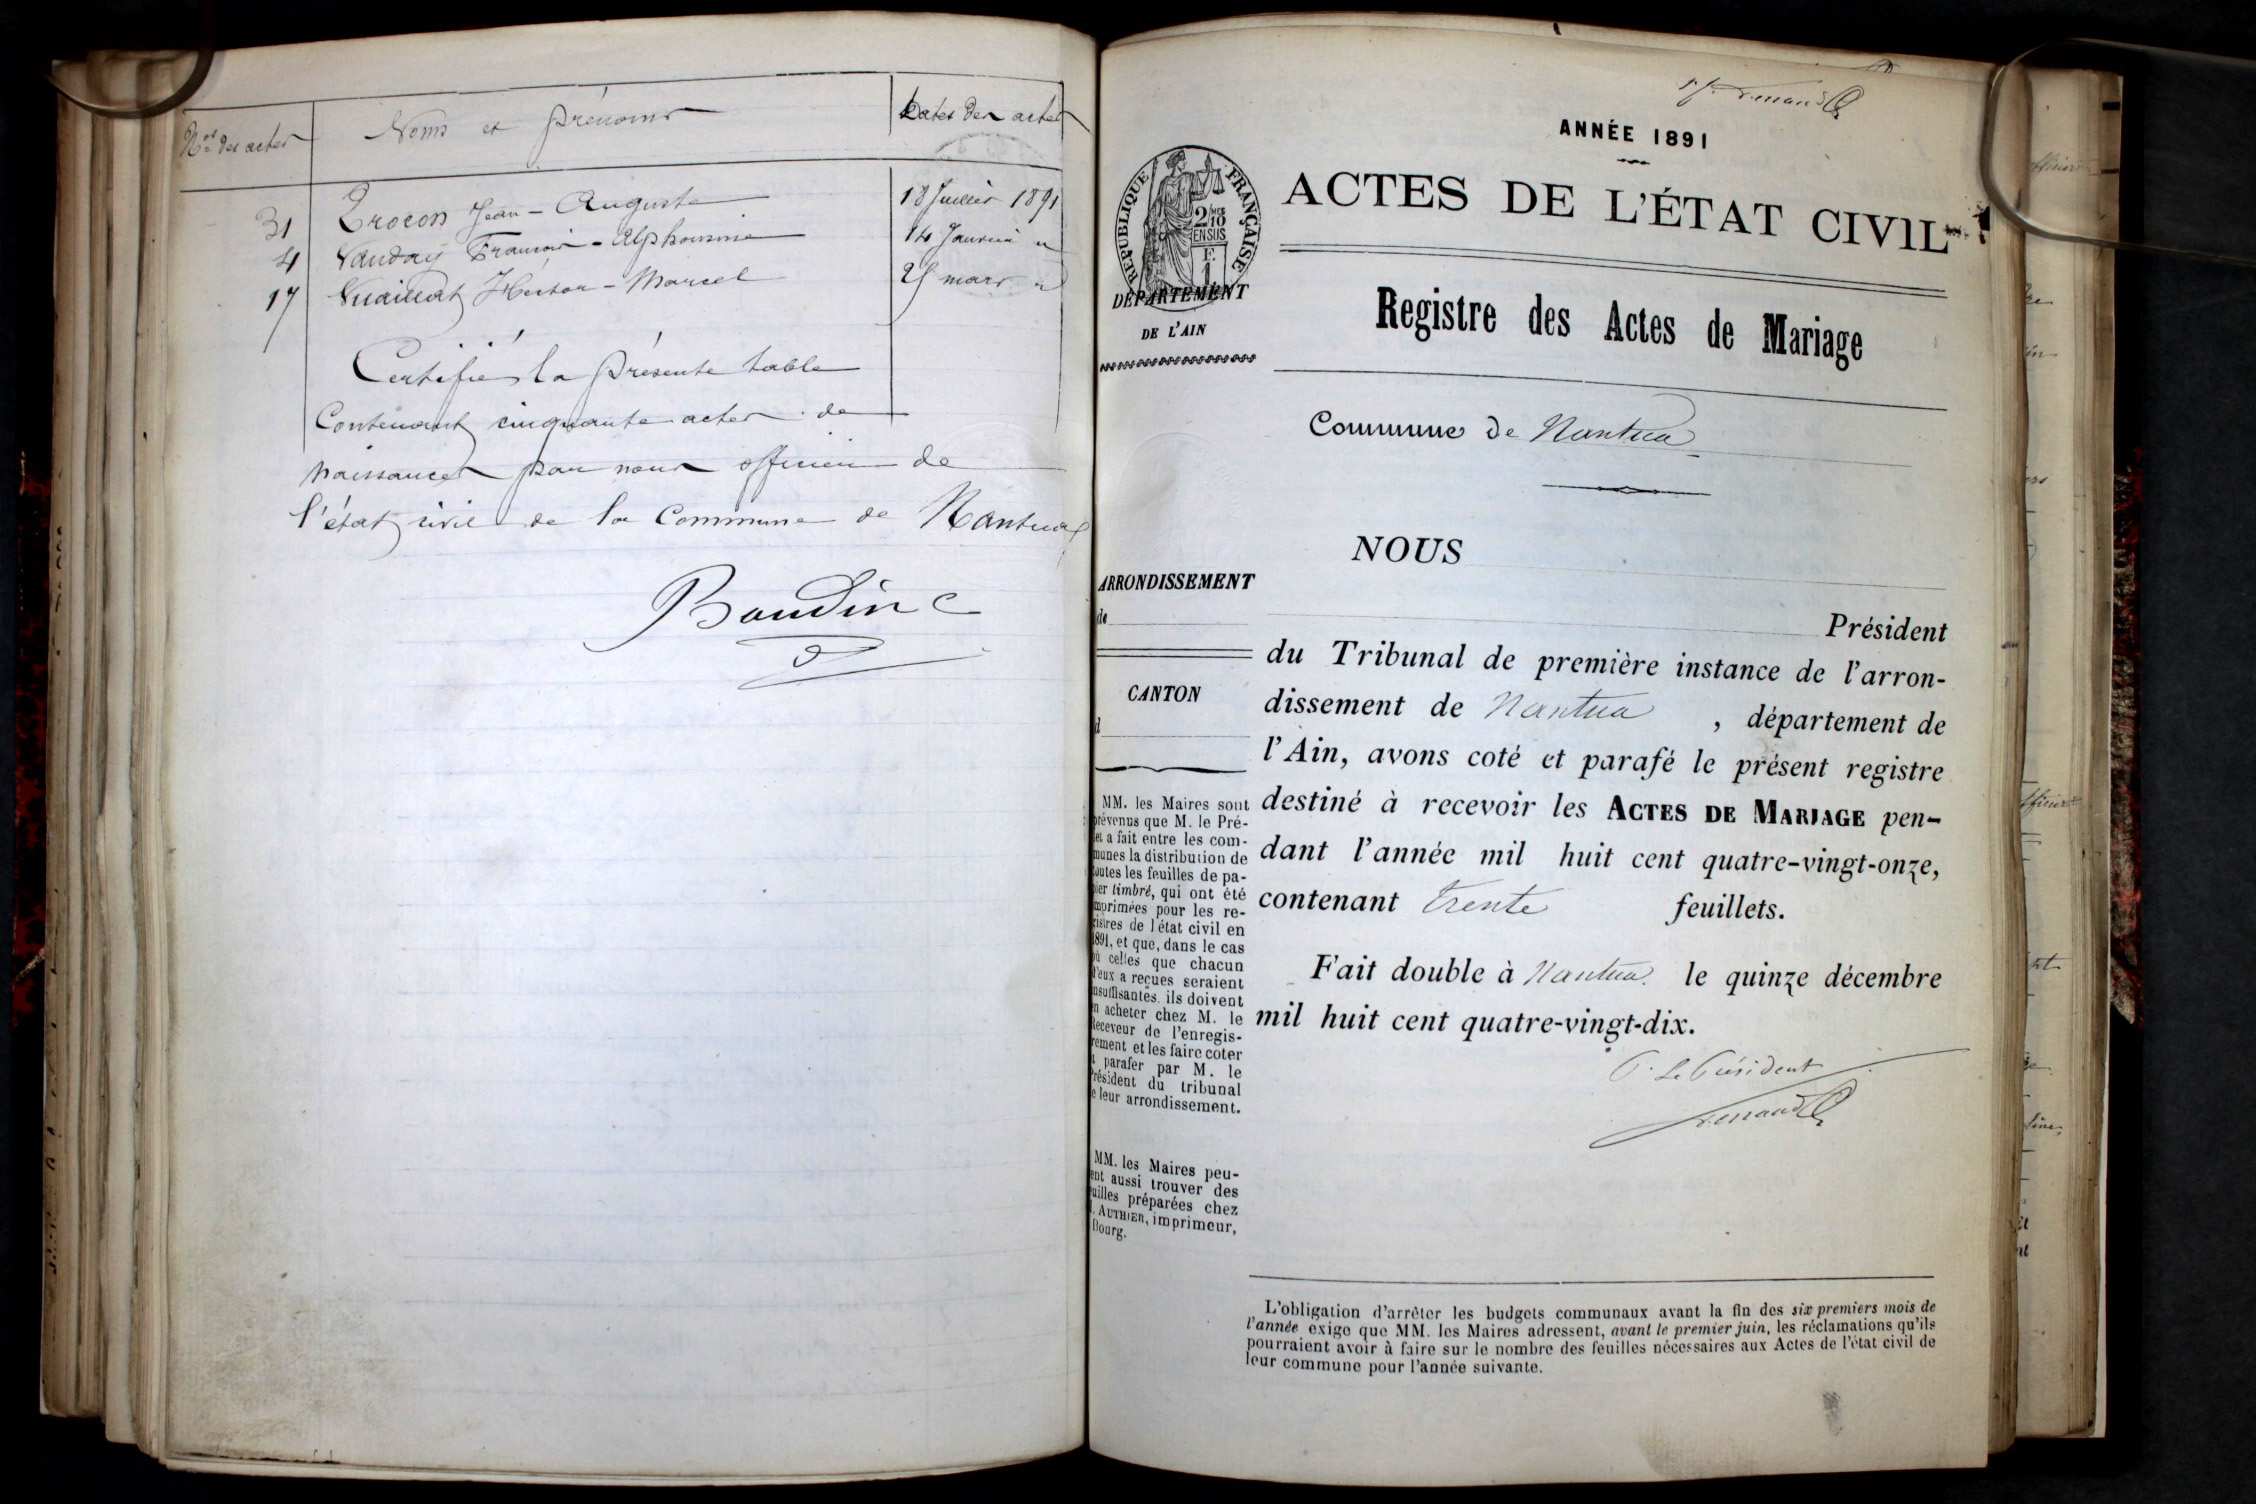 Nos des actes Noms et prénoms Dates des actes
31 Trocon Jean-Auguste 18 Juillet 1891
4 Vauday François-Alphonsine 14 Janvier "
17 Vuaillat Hector-Marcel 25 mars "
Certifié la présente table
Contenant cinquante actes de
naissances par nous officier de
l'état civil de la Commune de Nantua
Baudin
1er
ANNÉE 1891
ACTES DE L'ÉTAT CIVIL
RÉPUBLIQUE FRANÇAISE
2/10 EN SUS
DÉPARTEMENT
DE L'AIN
Registre des Actes de Mariage
Commune de Nantua
NOUS
ARRONDISSEMENT
de
Président
du Tribunal de première instance de l'arron-
dissement de Nantua , département de
l'Ain, avons coté et parafé le présent registre
destiné à recevoir les ACTES DE MARIAGE pen-
dant l'année mil huit cent quatre-vingt-onze,
contenant Trente feuillets.
Fait double à Nantua le quinze décembre
mil huit cent quatre-vingt-dix.
P. Le Président
CANTON
d
MM. les Maires sont
prévenus que M. le Pré-
fet a fait entre les com-
munes la distribution de
toutes les feuilles de pa-
pier timbré, qui ont été
imprimées pour les re-
gistres de l'état civil en
1891, et que, dans le cas
où celles que chacun
d'eux a reçues seraient
insuffisantes, ils doivent
en acheter chez M. le
Receveur de l'enregis-
rement et les faire coter
t parafer par M. le
Président du tribunal
e leur arrondissement.
MM. les Maires peu-
ent aussi trouver des
uilles préparées chez
. AUTHIER, imprimeur,
Bourg.
L'obligation d'arrêter les budgets communaux avant la fin des six premiers mois de
l'année exige que MM. les Maires adressent, avant le premier juin, les réclamations qu'ils
pourraient avoir à faire sur le nombre des feuilles nécessaires aux Actes de l'état civil de
leur commune pour l'année suivante.